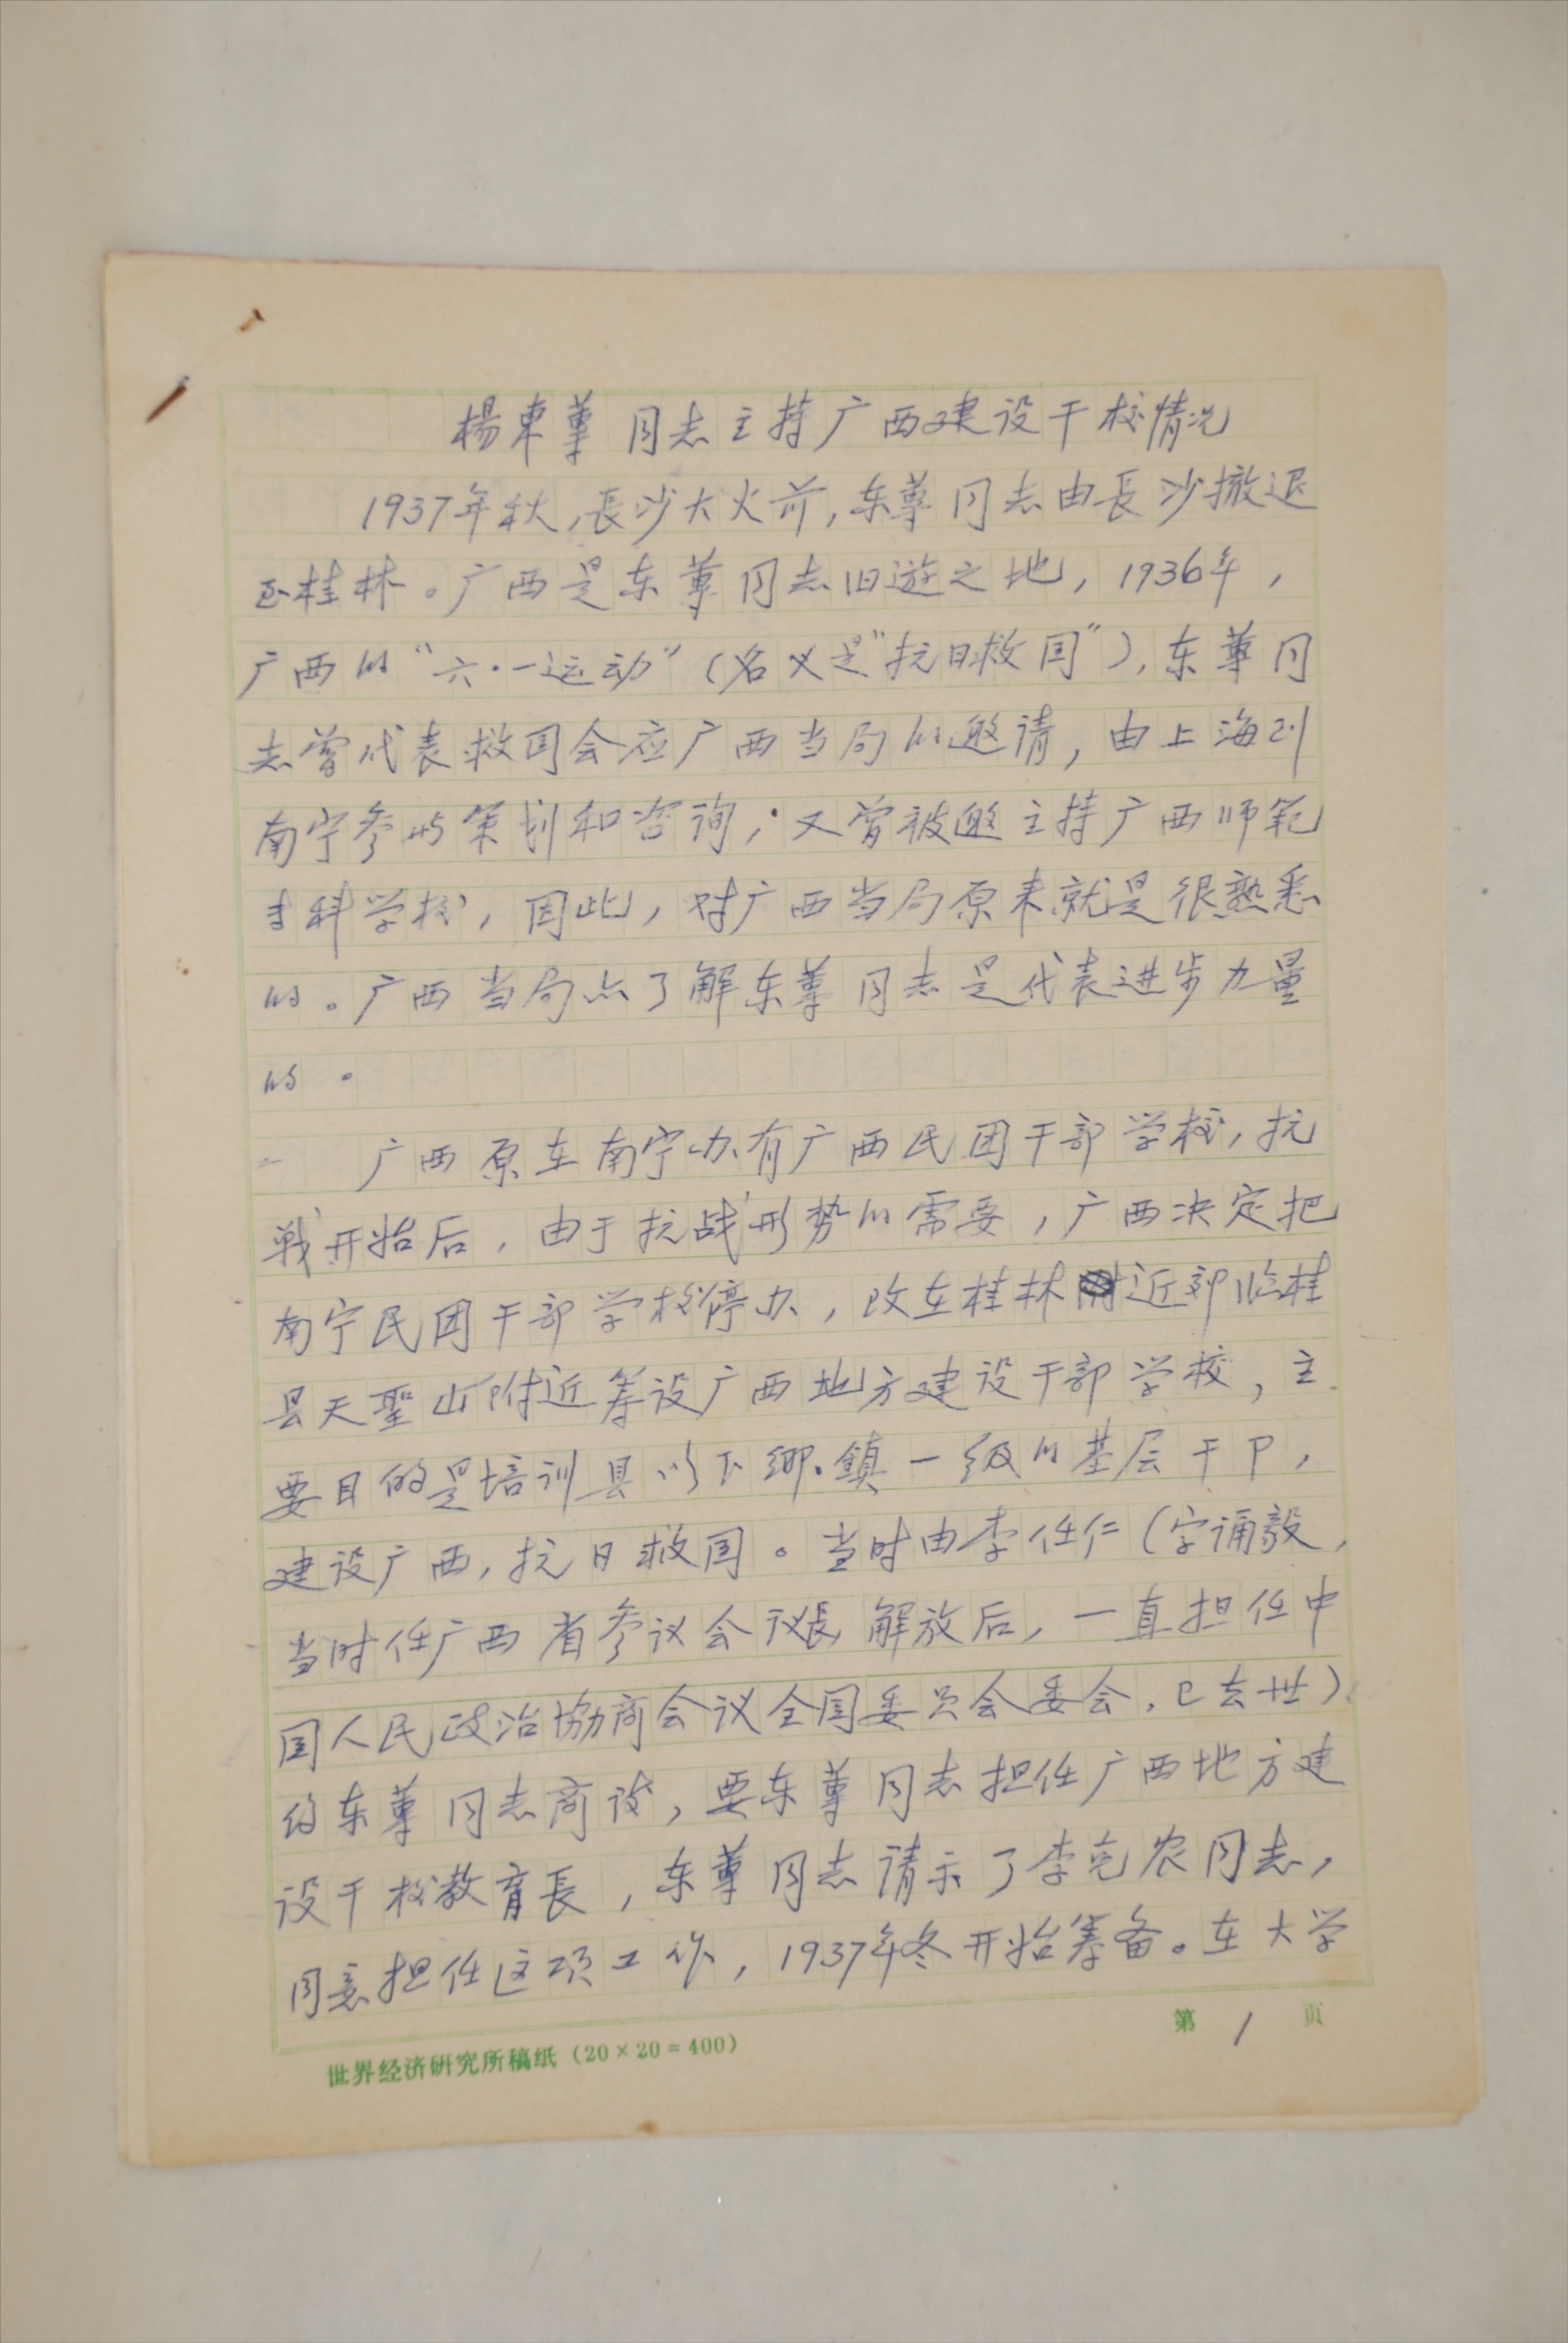 楊東蓴同志主持广西建设干校情况
1937年秋,長沙大火前,东蓴同志由長沙撤退
至桂林。广西是东蓴同志旧遊之地,1936年,
广西的“六·一运动”(名义是“抗日救国”),东蓴同
志曾代表救国会应广西当局的邀请,由上海到
南宁参与策划和咨询;又曾被邀主持广西师範
专科学校,因此,对广西当局原来就是很熟悉
的。广西当局点了解东蓴同志是代表进步力量
的。
广西原在南宁办有广西民团干部学校,抗
戰开始后,由于抗战形势的需要,广西决定把
南宁民团干部学校停办,改在桂林近郊临桂
县天聖山附近筹设广西地方建设干部学校,主
要目的是培训县以下鄉.鎮一级的基层干卩,
建设广西,抗日救国。当时由李任仁(字诵毅,
当时任广西省参议会议長,解放后,一直担任中
国人民政治協商会议全国委员会委会,已去世)
约东蓴同志商谈,要东蓴同志担任广西地方建
设干校教育長,东蓴同志请示了李克农同志,
同意担任这项工作,1937年冬开始筹备。在大学
世界经济研究所稿纸(20×20=400)
第 1 页